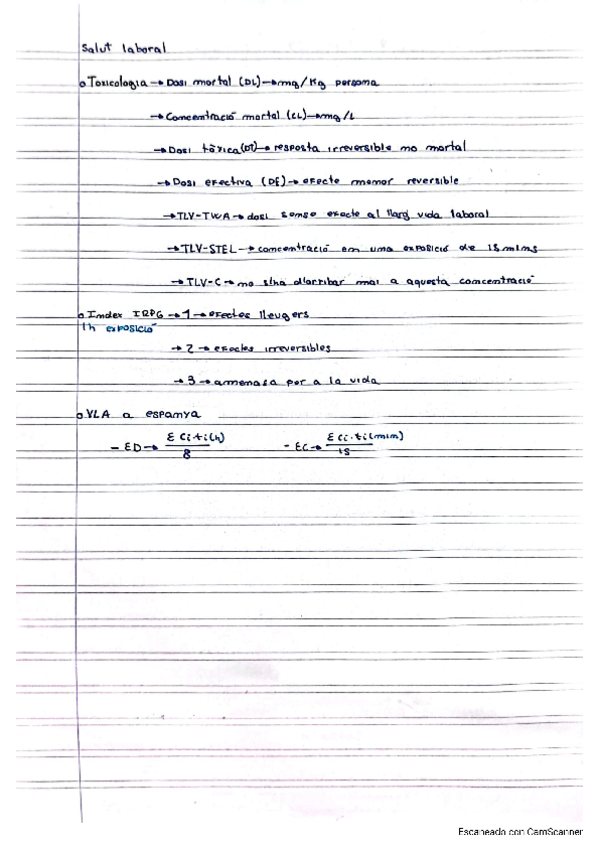 Salut laboral
o Toxicologia → Dosi mortal (DL) → mg/Kg persona
→ Concentració mortal (CL) → mg/L
→ Dosi tòxica (DT) → resposta irreversible no mortal
→ Dosi efectiva (DE) → efecte menor reversible
→ TLV-TWA → dosi sense efecte al llarg vida laboral
→ TLV-STEL → concentració en una exposició de 15 mins
→ TLV-C → no s'ha d'arribar mai a aquesta concentració
o Index IRPG → 1 → efectes lleugers
1h exposició
→ 2 → efectes irreversibles
→ 3 → amenasa per a la vida
o VLA a espanya
- ED → Σ Ci·ti(h) / 8 - EC → Σ Ci·ti(min) / 15
Escaneado con CamScanner